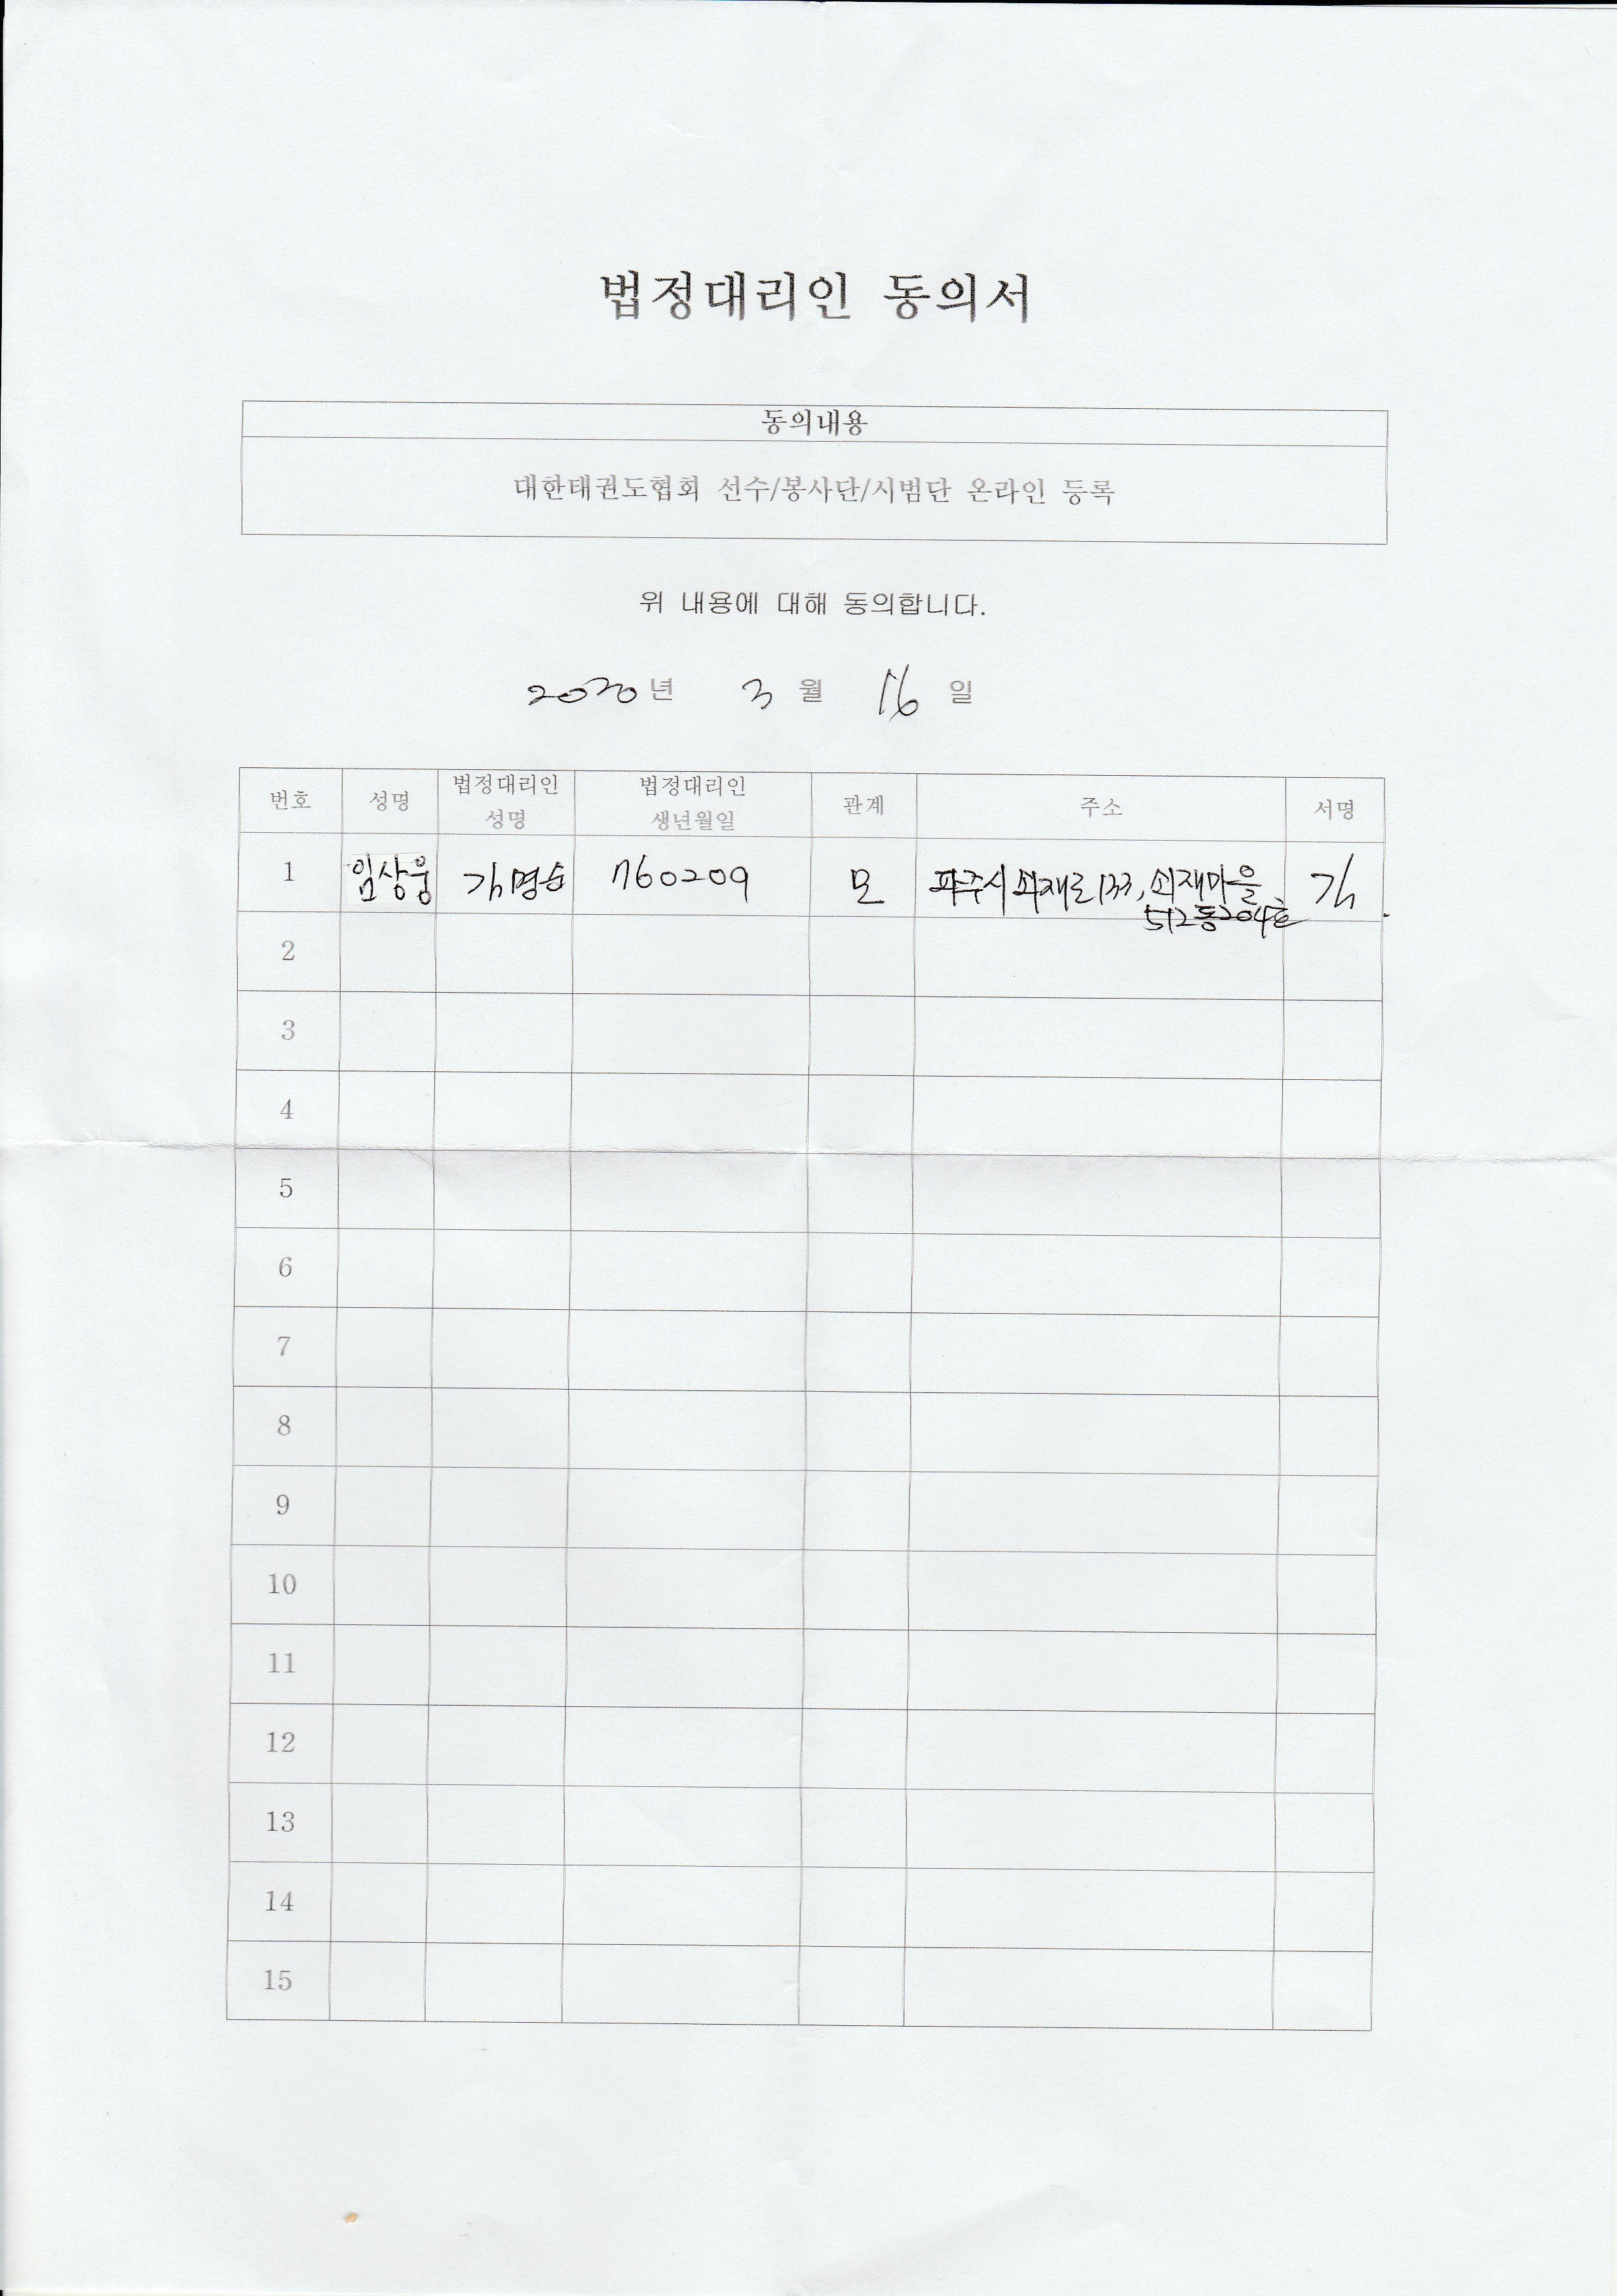 법정대리인 동의서
동의내용
대한태권도협회 선수/봉사단/시범단 온라인 등록
위 내용에 대해 동의합니다.
2020년 3월 16일
번호 성명 법정대리인 성명 법정대리인 생년월일 관계 주소 서명
1 임상웅 김명순 760209 모 파주시 쇠재로 133, 쇠재마을 김
512동 204호
2
3
4
5
6
7
8
9
10
11
12
13
14
15